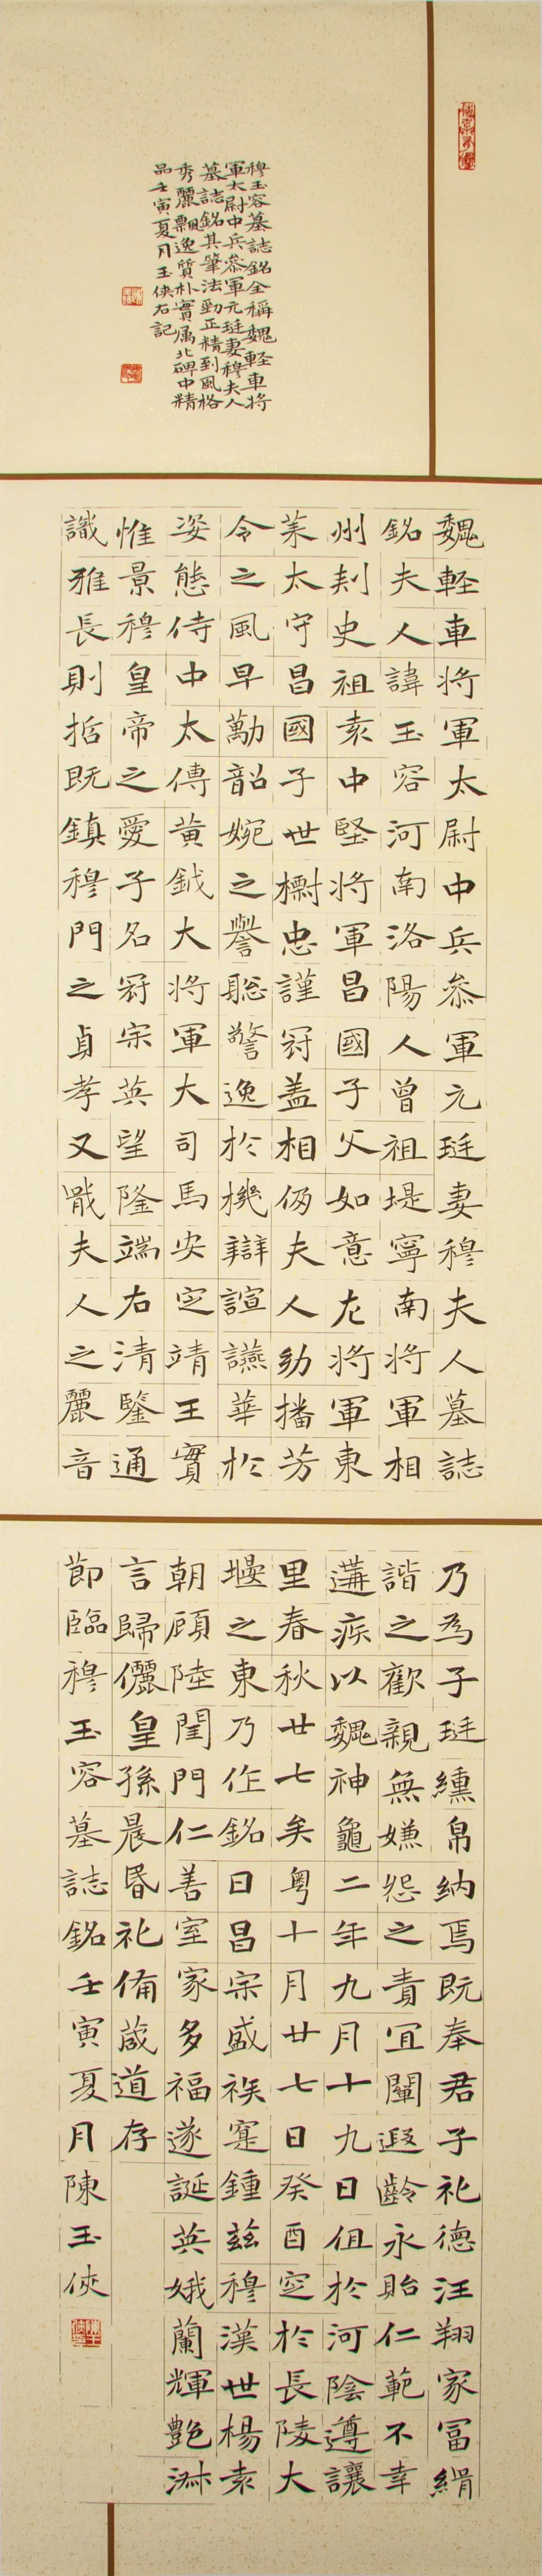 穆玉容墓誌銘全稱魏軽車将
軍太尉中兵叅軍元珽妻穆夫人
墓誌銘其筆法勁正精到風格
秀麗飄逸質朴實属北碑中精
品壬寅夏月玉侠右記
魏軽車将軍太尉中兵叅軍元珽妻穆夫人墓誌
銘夫人諱玉容河南洛陽人曾祖堤寧南将軍相
州刾史祖袁中堅将軍昌國子父如意左将軍東
莱太守昌國子世樹忠謹冠盖相仍夫人幼播芳
令之風早勵韶婉之譽聡警逸於機辯諠讌華於
姿態侍中太傅黄鉞大将軍大司馬安定靖王實
惟景穆皇帝之愛子名冠宗英望隆端右清鑒通
識雅長則哲既鎮穆門之貞孝又戢夫人之麗音
乃為子珽纁帛納焉既奉君子礼德汪翔家冨緝
諧之歡親無嫌怨之責宜闡遐齡永貽仁範不幸
遘疾以魏神龜二年九月十九日俎於河陰遵讓
里春秋廿七矣粤十月廿七日癸酉窆於長陵大
堰之東乃作銘曰昌宗盛族寔鍾兹穆漢世楊袁
朝頋陸閨門仁善室家多福遂誕英娥蘭輝艶淋
言歸儷皇孫晨昏礼俻蒇道存
節臨穆玉容墓誌銘壬寅夏月陳玉俠